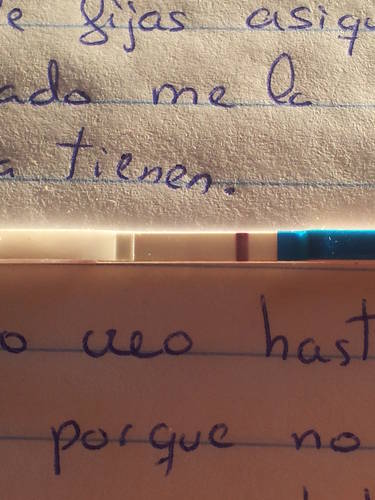 e fijas asiqu
ado me la
a tienen.
o veo hast
porque no